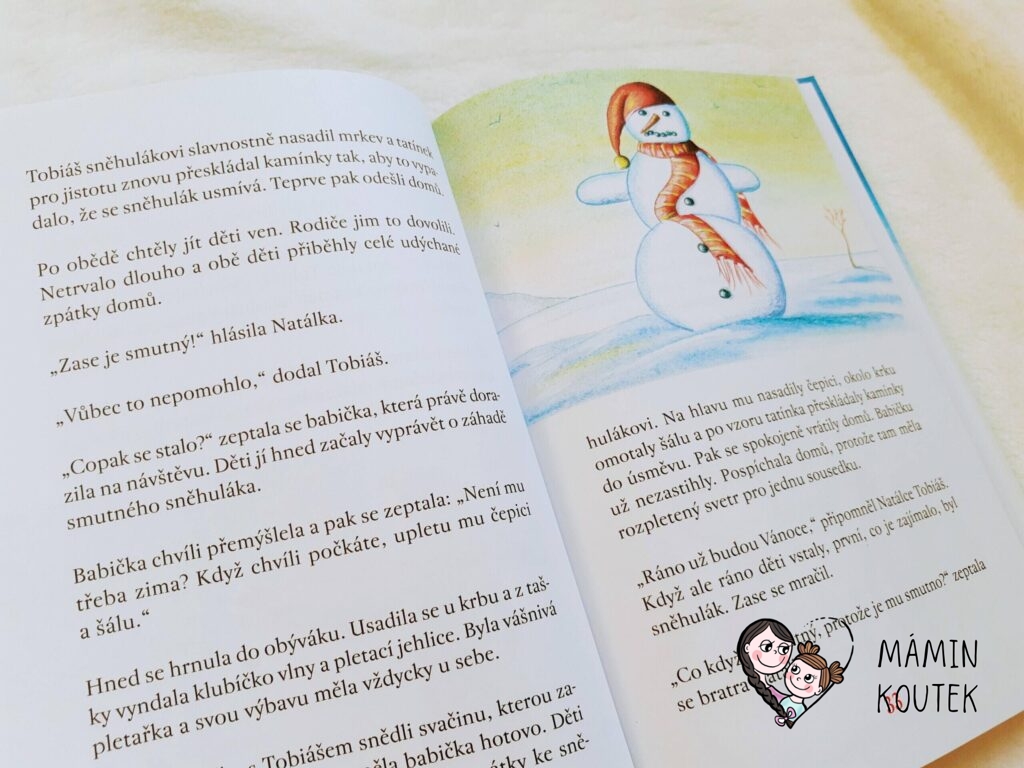 Tobiáš sněhulákovi slavnostně nasadil mrkev a tatínek
pro jistotu znovu přeskládal kamínky tak, aby to vypa-
dalo, že se sněhulák usmívá. Teprve pak odešli domů.
Po obědě chtěly jít děti ven. Rodiče jim to dovolili.
Netrvalo dlouho a obě děti přiběhly celé udýchané
zpátky domů.
„Zase je smutný!“ hlásila Natálka.
„Vůbec to nepomohlo,“ dodal Tobiáš.
„Copak se stalo?“ zeptala se babička, která právě dora-
zila na návštěvu. Děti jí hned začaly vyprávět o záhadě
smutného sněhuláka.
Babička chvíli přemýšlela a pak se zeptala: „Není mu
třeba zima? Když chvíli počkáte, upletu mu čepici
a šálu.“
Hned se hrnula do obýváku. Usadila se u krbu a z taš-
ky vyndala klubíčko vlny a pletací jehlice. Byla vášnivá
pletařka a svou výbavu měla vždycky u sebe.
s Tobiášem snědli svačinu, kterou za-
měla babička hotovo. Děti
zpátky ke sně-
hulákovi. Na hlavu mu nasadily čepici, okolo krku
omotaly šálu a po vzoru tatínka přeskládaly kamínky
do úsměvu. Pak se spokojeně vrátily domů. Babičku
už nezastihly. Pospíchala domů, protože tam měla
rozpletený svetr pro jednu sousedku.
„Ráno už budou Vánoce,“ připomněl Natálce Tobiáš.
Když ale ráno děti vstaly, první, co je zajímalo, byl
sněhulák. Zase se mračil.
„Co když protože je mu smutno?“ zeptala
se bratra
MÁMIN
KOUTEK